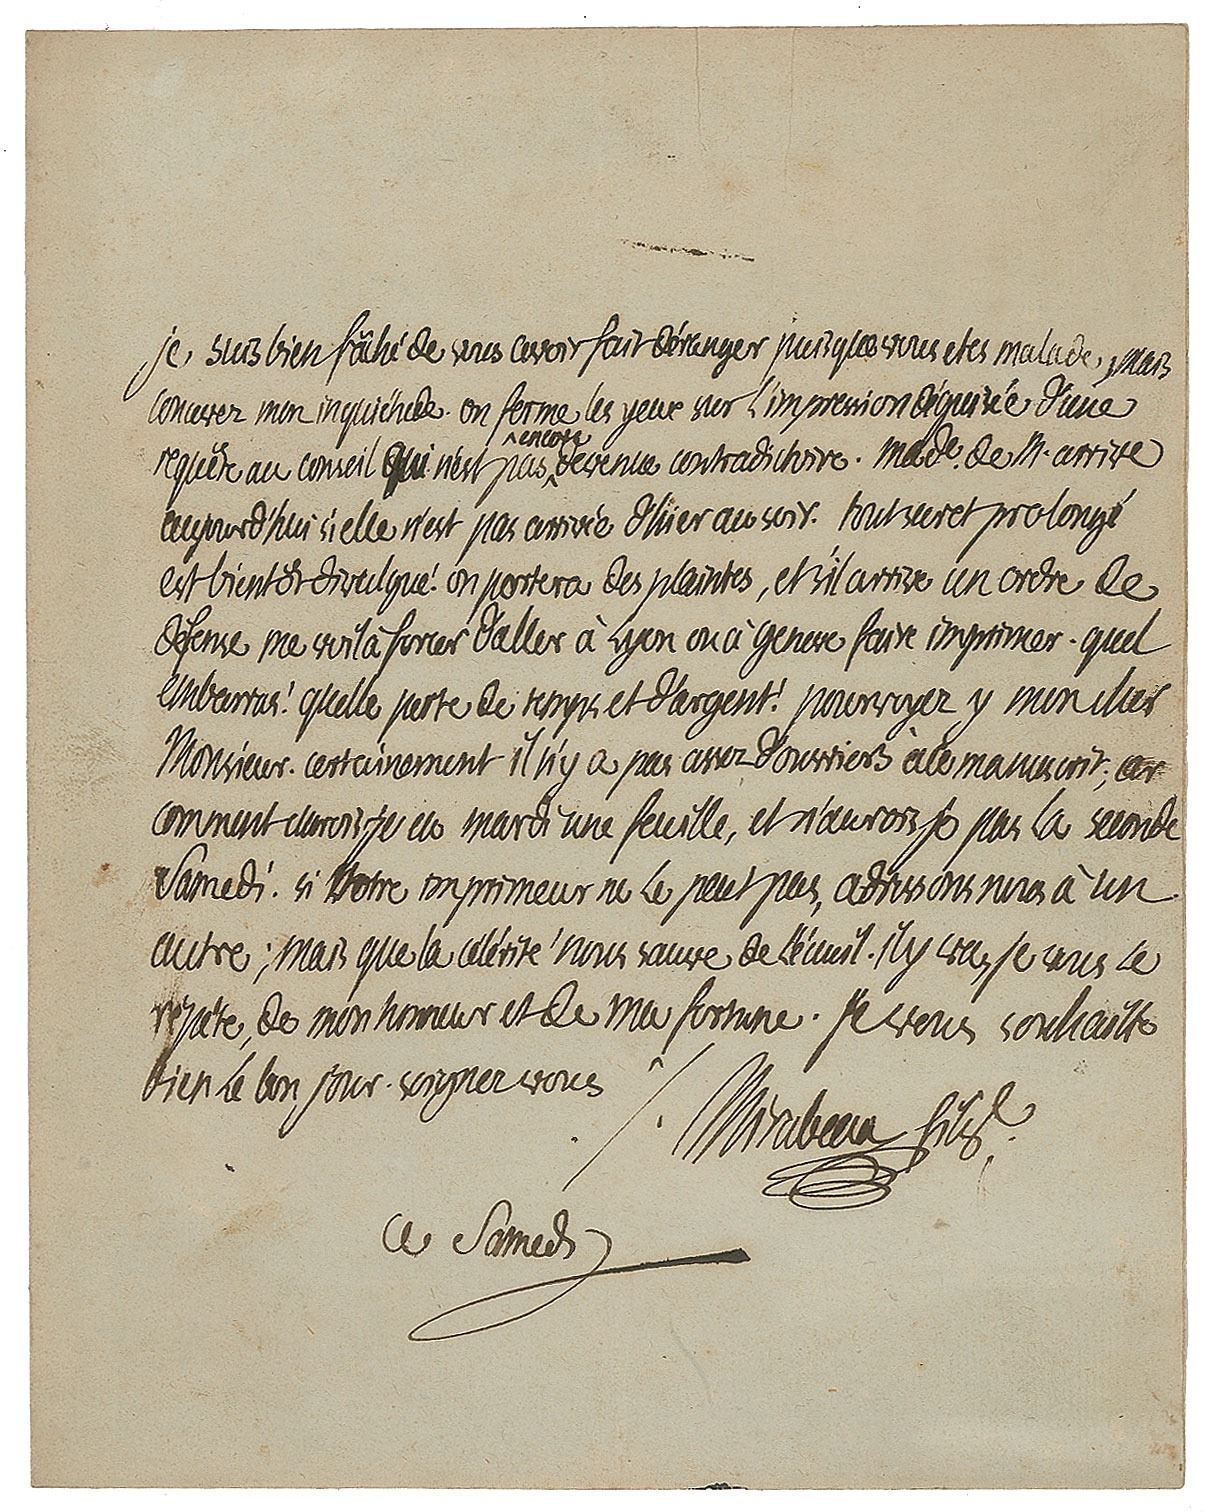 je suis bien fâché de vous avoir fait déranger puisque vous etes malade, mais
concevez mon inquiétude. on ferme les yeux sur l'impression déguisée d'une
requête au conseil qui n'est pas encore devenue contradictoire. made. de M. arrive
aujourd'hui si elle n'est pas arrivée d'hier au soir. tout secret prolongé
est bientôt divulgué. on portera des plaintes, et s'il arrive un ordre de
défense me voilà forcer d'aller à Lyon ou à Geneve faire imprimer. quel
embarras! quelle perte de temps et d'argent! pourvoyez y mon cher
Monsieur. certainement il n'y a pas assez d'ouvriers à ce manuscrit; car
comment aurois je eu mardi une feuille, et n'aurois je pas la seconde
Samedi. si votre imprimeur ne le peut pas, adressons nous à un
autre; mais que la célérité nous sauve de l'écueil. il y va, je vous le
répète, de mon honneur et de ma fortune. Je vous souhaitte
bien le bon jour. soignez vous
Mirabeau fils
Ce Samedi